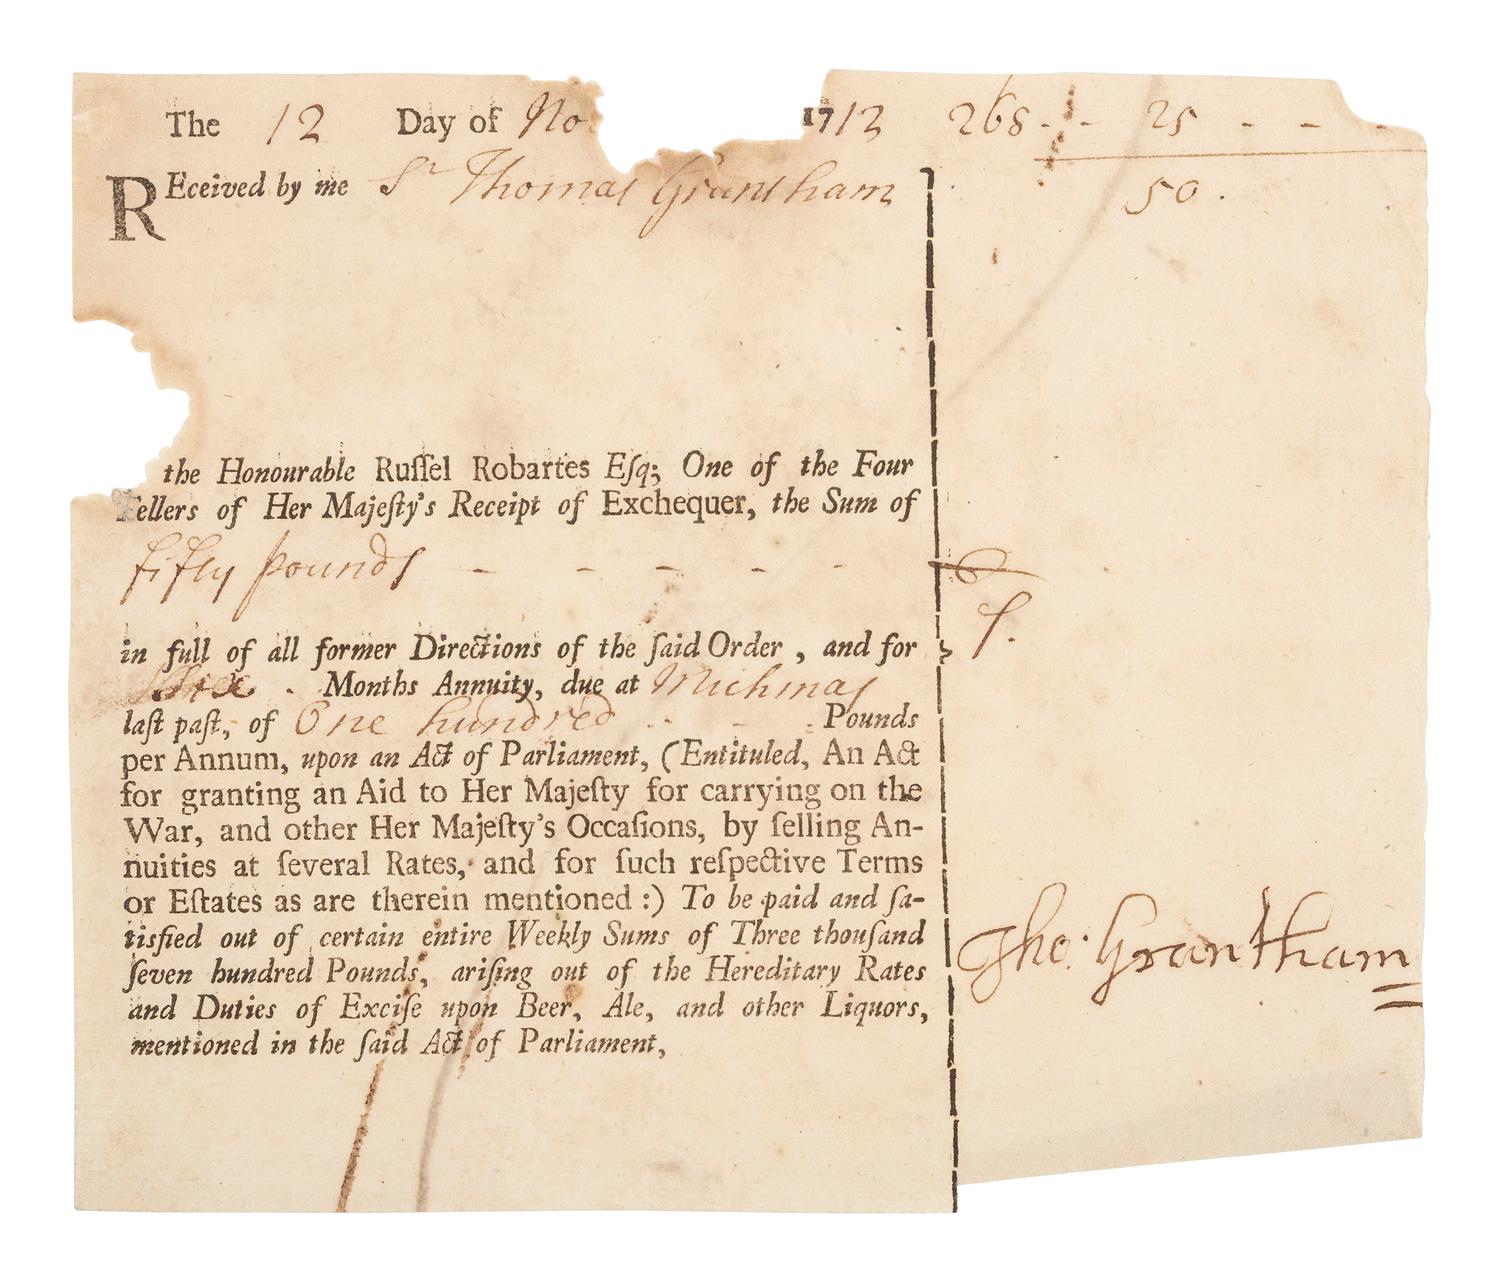 The 12 Day of No 1712 268 - - 25 - - -
REceived by me Sr Thomas Grantham
50.
the Honourable Ruſſel Robartes Eſq; One of the Four
Tellers of Her Majeſty's Receipt of Exchequer, the Sum of
fifty pounds - - - - -
in full of all former Directions of the ſaid Order, and for
Six Months Annuity, due at Michmas
laſt paſt, of One hundred - - Pounds
per Annum, upon an Act of Parliament, (Entituled, An Act
for granting an Aid to Her Majeſty for carrying on the
War, and other Her Majeſty's Occaſions, by ſelling An-
nuities at ſeveral Rates, and for ſuch reſpective Terms
or Eſtates as are therein mentioned :) To be paid and ſa-
tisfied out of certain entire Weekly Sums of Three thouſand
ſeven hundred Pounds, ariſing out of the Hereditary Rates
and Duties of Exciſe upon Beer, Ale, and other Liquors,
mentioned in the ſaid Act of Parliament,
Tho: Grantham